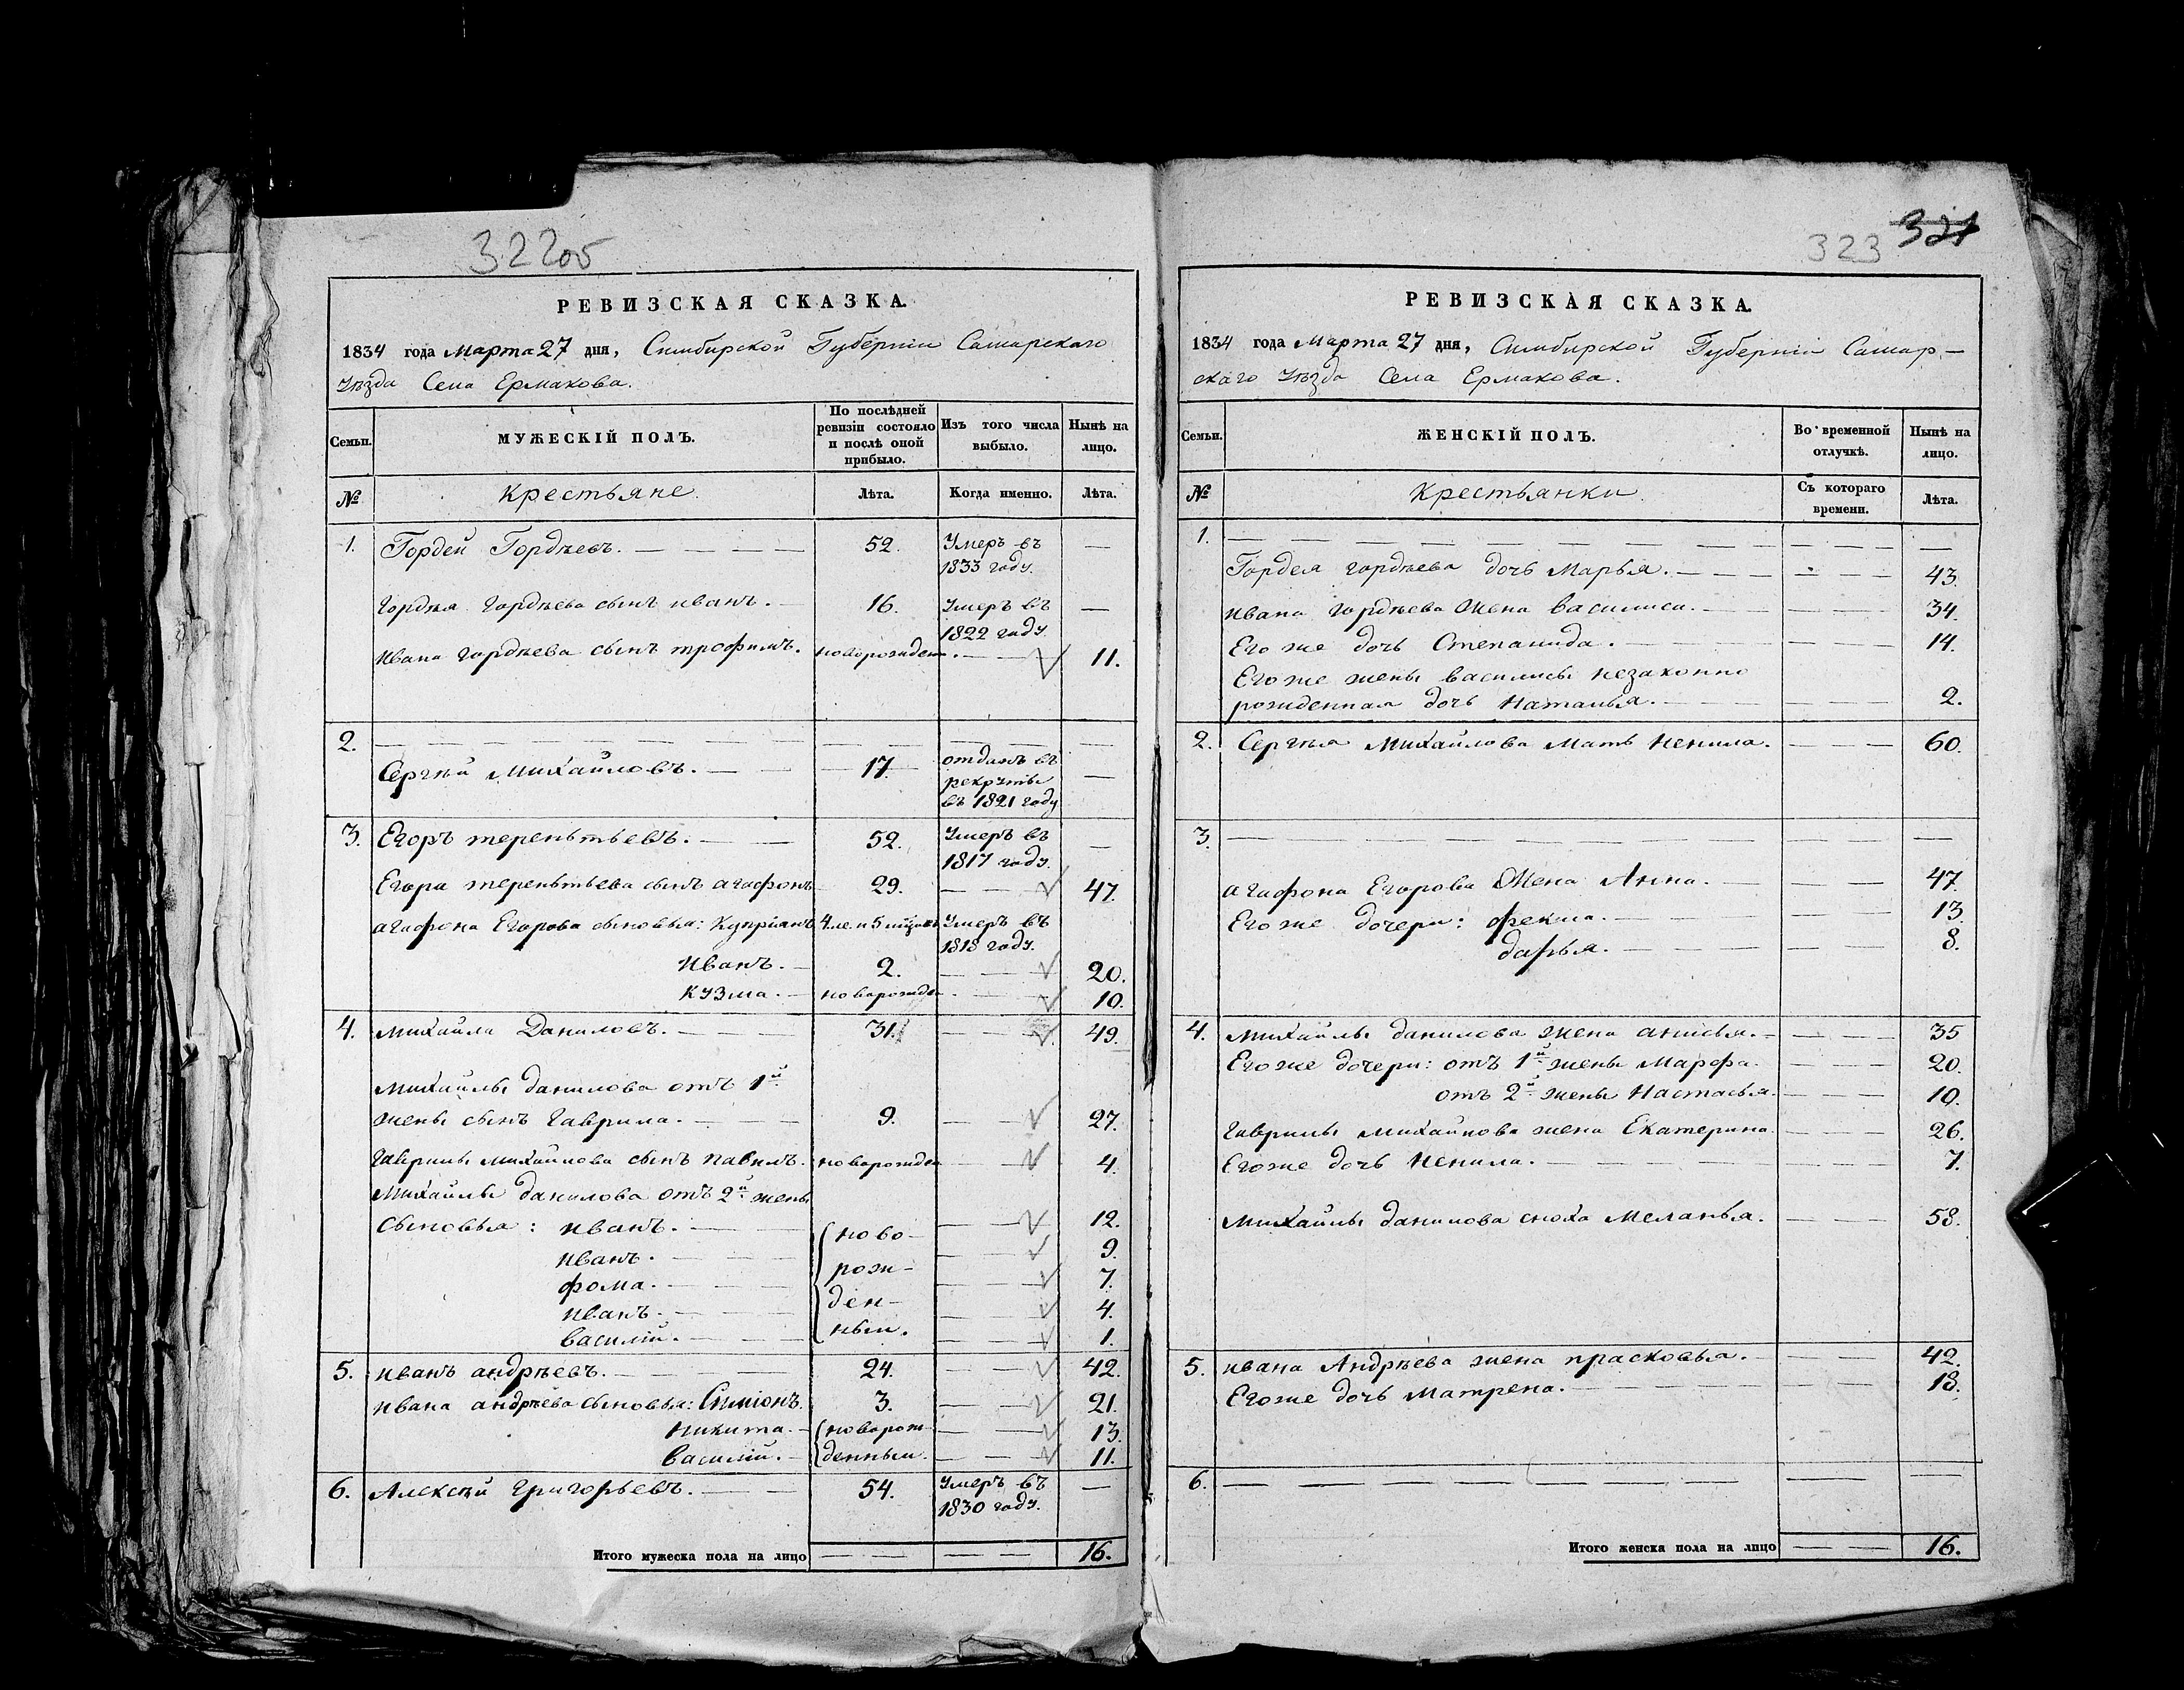 322об
РЕВИЗСКАЯ СКАЗКА.
1834 года Марта 27 дня, Симбирской Губерніи Самарскаго
Уѣзда Села Ермакова.
Семьи.
МУЖЕСКІЙ ПОЛЪ.
По послѣдней ревизіи состояло и послѣ оной прибыло.
Изъ того числа выбыло.
Нынѣ на лицо.
№ Крестьяне. Лѣта. Когда именно. Лѣта.
1. Гордей Гордѣевъ. — 52. Умеръ въ 1833 году. —
Гордѣя Гордѣева сынъ иванъ. — 16. Умеръ въ 1822 году. —
Ивана гордѣева сынъ трофимъ. новорожден. — 11.
2. — — — — —
Сергѣй Михайловъ. — 17. отданъ въ рекруты въ 1821 году —
3. Егоръ терентьевъ. — 52. Умеръ въ 1817 году. —
Егора терентьева сынъ агафонъ 29. — 47.
агафона Егорова сыновья: Купріянъ 4 ле. и 5 мѣцовъ Умеръ въ 1818 году.
Иванъ. — 2. — 20.
кузма. — новорожде. — 10.
4. михайла Даниловъ. — 31. — 49.
михайлы данилова отъ 1й
жены сынъ гаврила. — 9. — 27.
гаврилы михайлова сынъ павилъ. новорожде — 4.
Михайлы данилова отъ 2й жены
сыновья: иванъ. — 12.
иванъ. — 9.
фома. — 7.
иванъ. — 4.
василій. — 1.
ново-
рож-
ден-
ныи.
5. иванъ андрѣевъ. — 24. — 42.
ивана андрѣева сыновья: Симіонъ. 3. — 21.
никита. — новорож- — 13.
василій. — денныи. — 11.
6. Алексѣй григорьевъ. — 54. Умеръ въ 1830 году. —
Итого мужеска пола на лицо — — 16.
323 321
РЕВИЗСКАЯ СКАЗКА.
1834 года Марта 27 дня, Симбирской Губерніи Самар-
скаго Уѣзда Села Ермакова.
Семьи.
ЖЕНСКІЙ ПОЛЪ.
Во временной отлучкѣ.
Нынѣ на лицо.
№ Крестьянки. Съ котораго времени. Лѣта.
1. — — — — —
Гордея гордѣева дочь Марья. — 43.
ивана гордѣева жена василиса. — 34.
Его же дочь Степанида. — 14.
Его же жены василисы незаконно
рожденная дочь Наталья. — 2.
2. Сергѣя Михайлова мать ненила. — 60.
3. — — — — —
агафона Егорова Жена Анна. — 47.
Его же дочери: фекла. — 13.
дарья. — 8.
4. михайлы данилова жена анисья. — 35
Его же дочери: отъ 1й жены Марфа. 20.
отъ 2й жены Настасья. — 10.
гаврилы михайлова жена Екатерина. — 26.
Его же дочь Ненила. — 7.
михайлы данилова сноха меланья. — 58.
5. ивана Андрѣева жена прасковья. — 42.
Его же дочь матрена. — 18.
6. — — — — —
Итого женска пола на лицо — — 16.